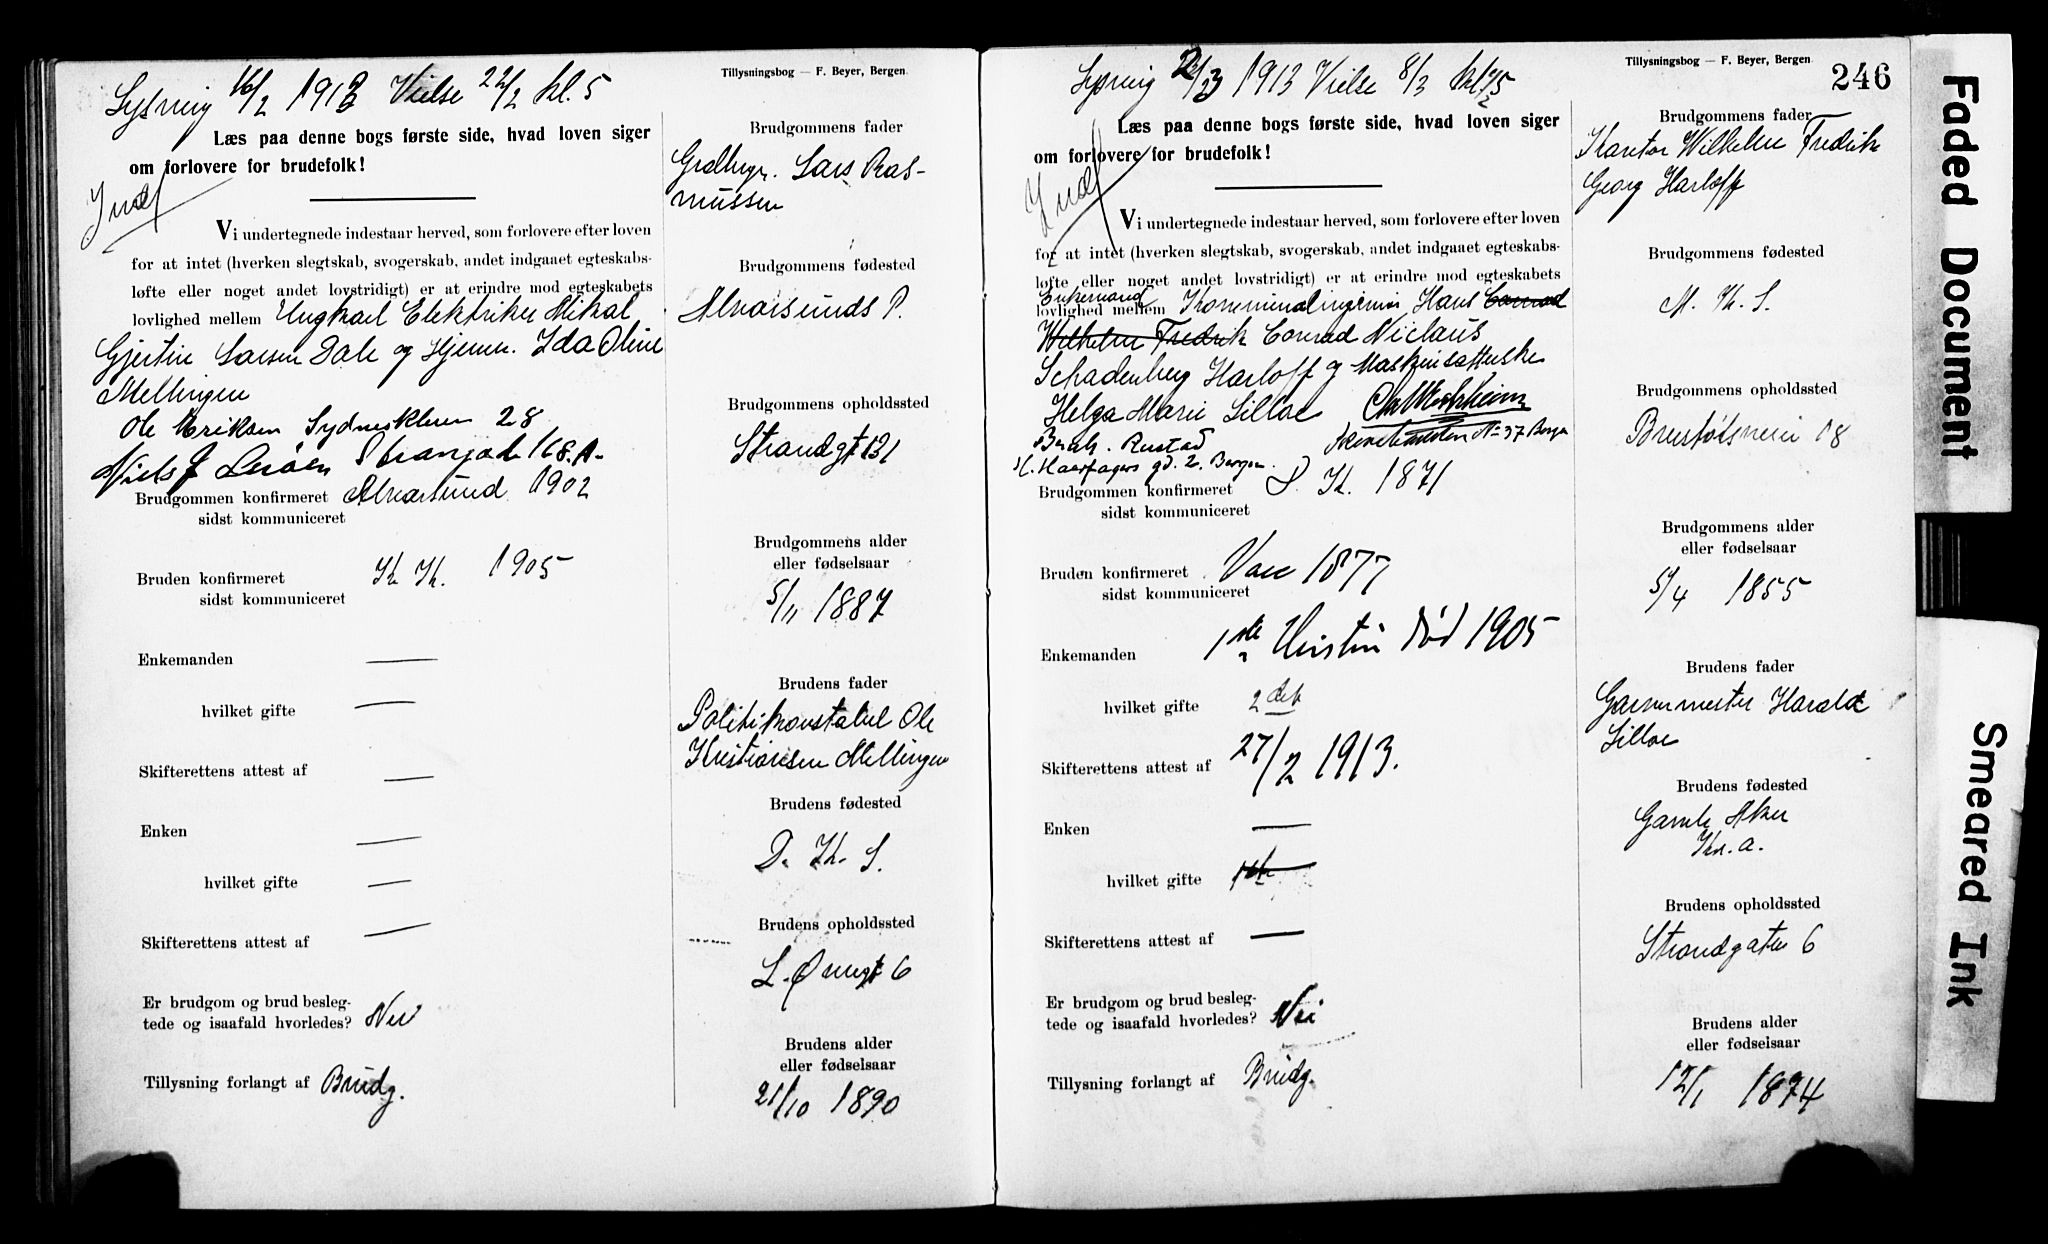 Lysning 16/2 1913 Vielse 22/2 kl. 5
Tillysningsbog — F. Beyer, Bergen.
Læs paa denne bogs første side, hvad loven siger
om forlovere for brudefolk!
Indf
Vi undertegnede indestaar herved, som forlovere efter loven
for at intet (hverken slegtskab, svogerskab, andet indgaaet egteskabs-
løfte eller noget andet lovstridigt) er at erindre mod egteskabets
lovlighed mellem Ungkarl Elektriker Mikal
Gjertin Larsen Dale og Hjemv. Ida Oline
Mellingen
Ole Eriksen Sydneskleven 28
Niels J Lerøen Strangad 168 A.
Brudgommen konfirmeret Alvarsund 1902
sidst kommuniceret
Bruden konfirmeret K. K. 1905
sidst kommuniceret
Enkemanden —
hvilket gifte —
Skifterettens attest af —
Enken —
hvilket gifte —
Skifterettens attest af —
Er brudgom og brud besleg-
tede og isaafald hvorledes? Nei
Tillysning forlangt af Brudg.
Brudgommens fader
Grdbrgr. Lars Ras-
mussen
Brudgommens fødested
Alvorsunds P.
Brudgommens opholdssted
Strandgt 131
Brudgommens alder
eller fødselsaar
5/11 1887
Brudens fader
Politikonstabel Ole
Kristiansen Mellingen
Brudens fødested
D. K. S.
Brudens opholdssted
L. Øvregt 6
Brudens alder
eller fødselsaar
21/10 1890
Lysning 2/3 1913 Vielse 8/3 kl 1/2 5
Tillysningsbog — F. Beyer, Bergen.
246
Læs paa denne bogs første side, hvad loven siger
om forlovere for brudefolk!
Indf
Vi undertegnede indestaar herved, som forlovere efter loven
for at intet (hverken slegtskab, svogerskab, andet indgaaet egteskabs-
løfte eller noget andet lovstridigt) er at erindre mod egteskabets
Enkemand
lovlighed mellem Kommunalingeniør Hans Conrad
Wilhelm Fredrik Conrad Niclaus
Schadenberg Harloff og Maskinsætterske
Helga Marie Lilloe
Rustad
N° 37 Bergen
H. Haarfagers gd. 2. Bergen.
Brudgommen konfirmeret D. K. 1871
sidst kommuniceret
Bruden konfirmeret 1877
sidst kommuniceret
Enkemanden 1ste Hustru død 1905
hvilket gifte 2det
Skifterettens attest af 27/2 1913.
Enken —
hvilket gifte 1ste
Skifterettens attest af —
Er brudgom og brud besleg-
tede og isaafald hvorledes? Nei
Tillysning forlangt af Brudg.
Brudgommens fader
Kantor Wilhelm Fredrik
Georg Harloff
Brudgommens fødested
M. K. S.
Brudgommens opholdssted
18
Brudgommens alder
eller fødselsaar
5/4 1855
Brudens fader
Garvermester Harald
Lilloe
Brudens fødested
Gamle Aker
Kr. a.
Brudens opholdssted
Strandgaten 6
Brudens alder
eller fødselsaar
12/1 1874
Faded Document
Smeared Ink